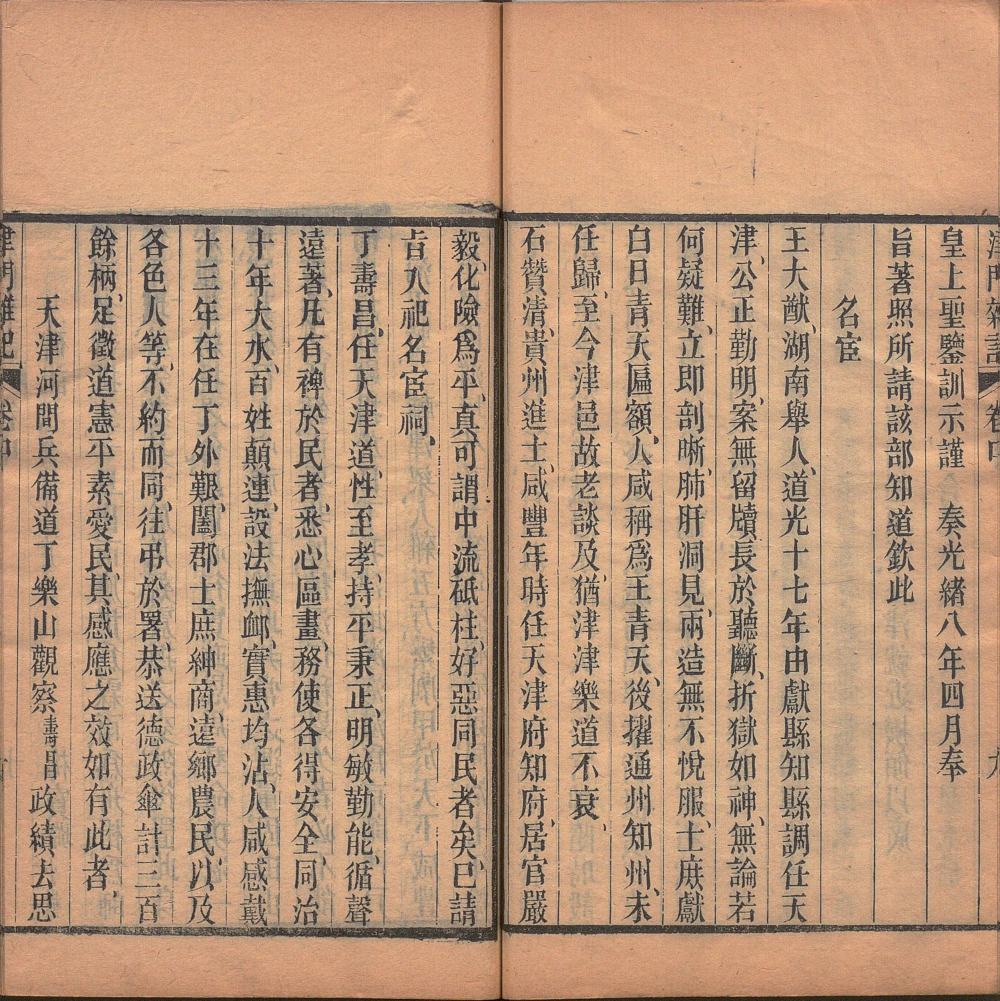 津門雜記 卷中 九
皇上聖鑒訓示謹 奏光緒八年四月奉
旨著照所請該部知道欽此
名宦
王大猷、湖南舉人、道光十七年由獻縣知縣調任天
津、公正勤明、案無留牘、長於聽斷、折獄如神、無論若
何疑難、立即剖晰、肺肝洞見、兩造無不悅服、士庶獻
白日青天匾額、人咸稱爲王青天、後擢通州知州、未
任歸、至今津邑故老談及、猶津津樂道不衰、
石贊清、貴州進士、咸豐年時任天津府知府、居官嚴
毅、化險爲平、眞可謂中流砥柱、好惡同民者矣、已請
旨入祀名宦祠、
丁壽昌、任天津道、性至孝、持平秉正、明敏勤能、循聲
遠著、凡有裨於民者、悉心區畫、務使各得安全、同治
十年大水、百姓顛連、設法撫卹、實惠均沾、人咸感戴
十三年在任丁外艱、闔郡士庶紳商、遠鄉農民、以及
各色人等、不約而同、往弔於署、恭送德政傘計三百
餘柄、足徵道憲平素愛民、其感應之效如有此者、
天津河間兵備道丁樂山觀察壽昌政績去思
津門雜記 卷中